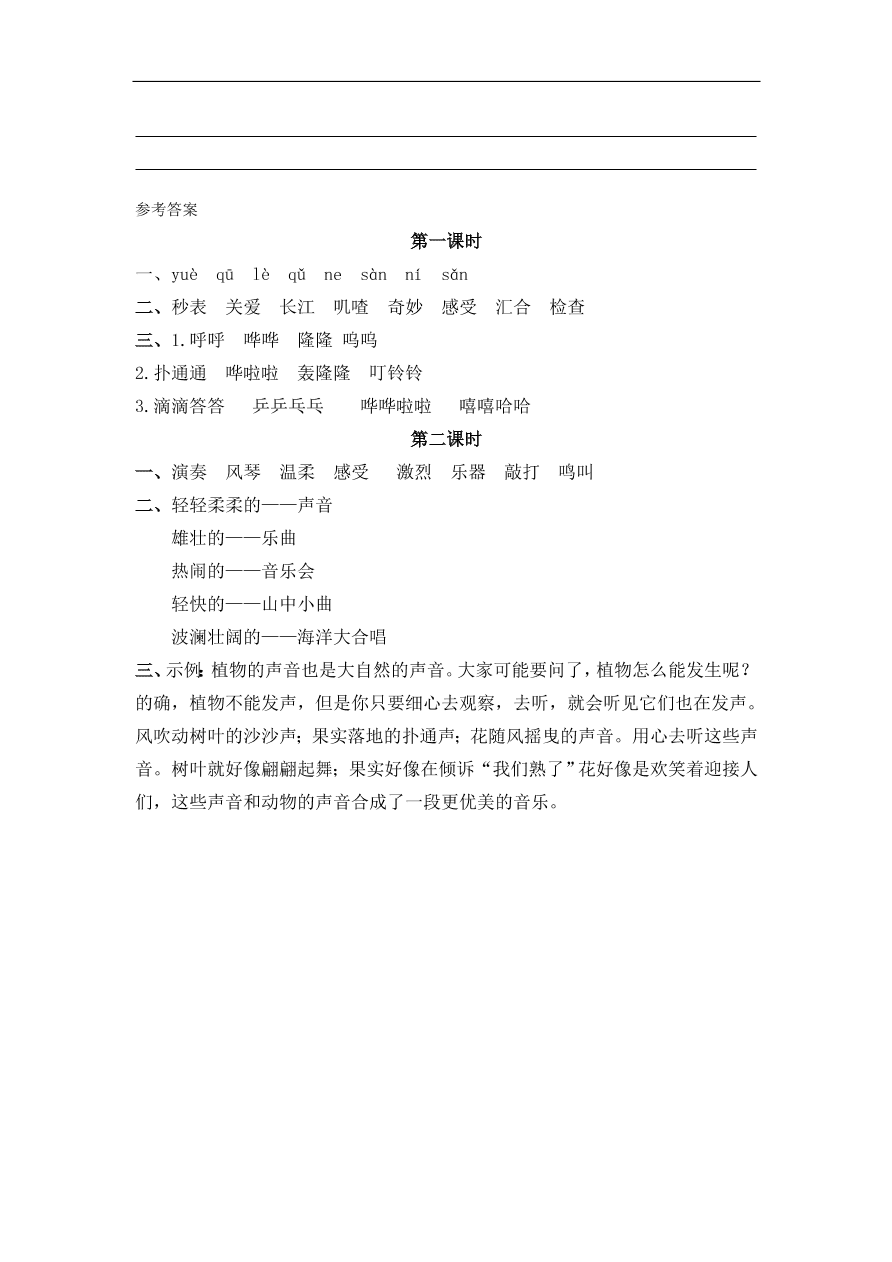 参考答案
第一课时
一、yuè qū lè qǔ ne sàn ní sǎn
二、秒表 关爱 长江 叽喳 奇妙 感受 汇合 检查
三、1.呼呼 哗哗 隆隆 呜呜
2.扑通通 哗啦啦 轰隆隆 叮铃铃
3.滴滴答答 乒乒乓乓 哗哗啦啦 嘻嘻哈哈
第二课时
一、演奏 风琴 温柔 感受 激烈 乐器 敲打 鸣叫
二、轻轻柔柔的——声音
雄壮的——乐曲
热闹的——音乐会
轻快的——山中小曲
波澜壮阔的——海洋大合唱
三、示例：植物的声音也是大自然的声音。大家可能要问了，植物怎么能发生呢？
的确，植物不能发声，但是你只要细心去观察，去听，就会听见它们也在发声。
风吹动树叶的沙沙声；果实落地的扑通声；花随风摇曳的声音。用心去听这些声
音。树叶就好像翩翩起舞；果实好像在倾诉“我们熟了”花好像是欢笑着迎接人
们，这些声音和动物的声音合成了一段更优美的音乐。